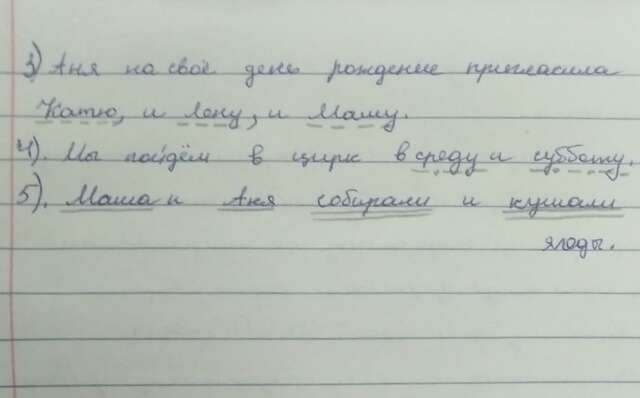 3) Аня на своё день рождение пригласила
Катю, и Лену, и Машу.
4). Мы пойдём в цирк в среду и субботу.
5). Маша и Аня собирали и кушали
ягоды.